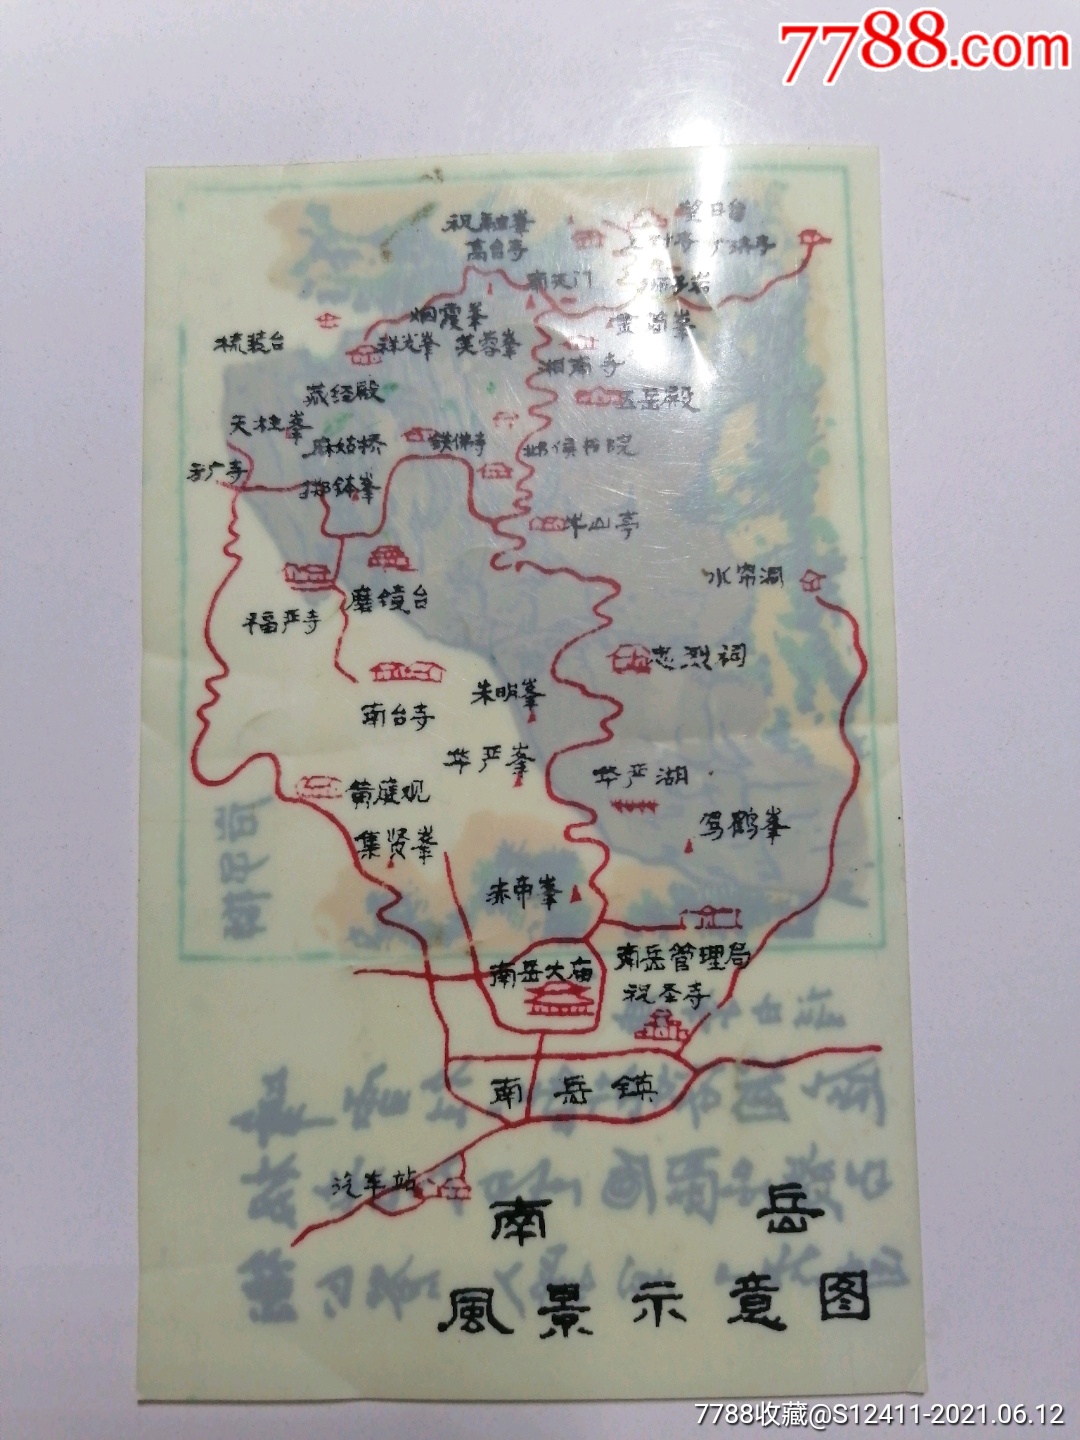 7788.com
祝融峯
望日台
高台寺
上封寺
广济亭
南天门
狮子岩
烟霞峯
梳装台
祥光峯
芙蓉峯
湘南寺
藏经殿
五岳殿
天柱峯
麻姑桥
铁佛寺
邺侯书院
方广寺
掷钵峯
半山亭
水帘洞
磨镜台
福严寺
忠烈祠
朱明峯
南台寺
华严峯
华严湖
黄庭观
驾鹤峯
集贤峯
赤帝峯
南岳大庙
南岳管理局
祝圣寺
南岳镇
汽车站
南岳
風景示意图
7788收藏@S12411-2021.06.12